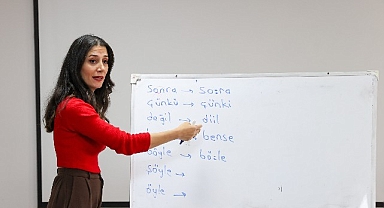 Sonra → Sora
Çünkü → Çünki
değil → diil
→ bense
böyle → bö:le
şöyle →
öyle →